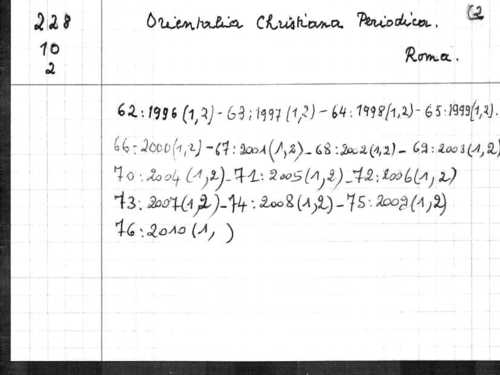 228 Orientalia Christiana Periodica. (2
10
2 Roma.
62:1996(1,2)-63:1997(1,2)-64:1998(1,2)-65:1999(1,2).
66:2000(1,2)-67:2001(1,2)-68:2002(1,2)-69:2003(1,2)
70:2004(1,2)-71:2005(1,2)-72:2006(1,2)
73:2007(1,2)-74:2008(1,2)-75:2009(1,2)
76:2010(1, )